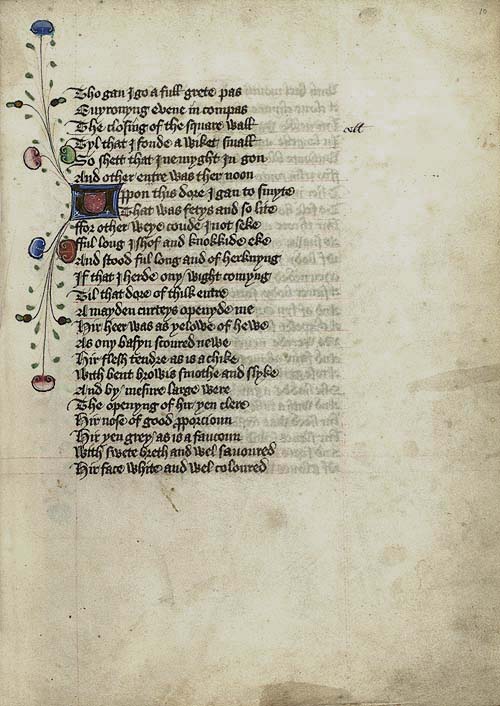 10
Tho gan I go a full grete pas
Enyronyng evene in compas
The closing of the square wall
Tyl that I fonde a wiket small
So shett that I ne myght In gon
And other entre was ther noon
Uppon this dore I gan to smyte
That was fetys and so lite
ffor other weye coude I not seke
fful long I shof and knokkide eke
And stood ful long and of herknyng
If that I herde ony wight comyng
Til that dore of thilk entre
A mayden curteys openyde me
Hir heer was as yelowe of hewe
As ony basyn scoured newe
Hir flesh tendre as is a chike
With bent browis smothe and slyke
And by mesure large were
The openyng of hir yen clere
Hir nose of good proporcioun
Hir yen grey as is a faucoun
With swete breth and wel savoured
Hir face white and wel coloured